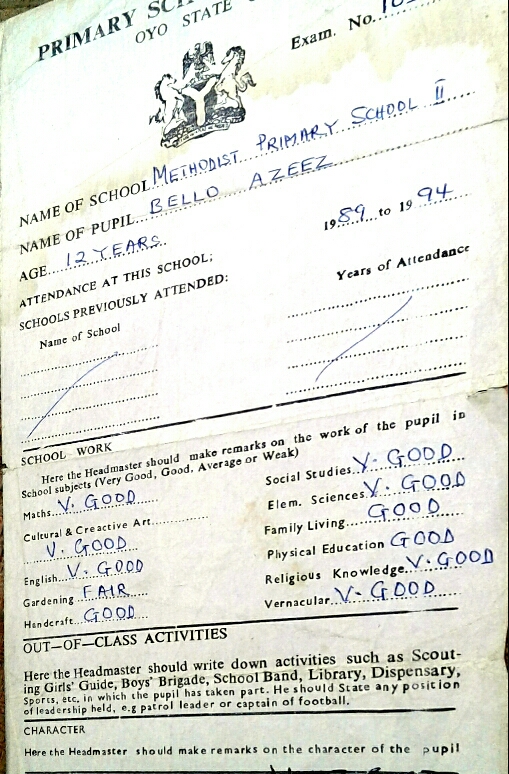 PRIMARY
OYO STATE
Exam. No.
NAME OF SCHOOL METHODIST PRIMARY SCHOOL II
NAME OF PUPIL BELLO AZEEZ
AGE 12 YEARS
1989 to 1994
ATTENDANCE AT THIS SCHOOL;
SCHOOLS PREVIOUSLY ATTENDED:
Name of School
Years of Attendance
SCHOOL WORK
Here the Headmaster should make remarks on the work of the pupil in
School subjects (Very Good, Good, Average or Weak)
Maths V. GOOD
Cultural & Creactive Art
V. GOOD
English V. GOOD
Gardening FAIR
Handcraft GOOD
Social Studies V. GOOD
Elem. Sciences V. GOOD
Family Living GOOD
Physical Education GOOD
Religious Knowledge V. GOOD
Vernacular V. GOOD
OUT—OF—CLASS ACTIVITIES
Here the Headmaster should write down activities such as Scout-
ing Girls' Guide, Boys' Brigade, School Band, Library, Dispensary,
Sports, etc. in which the pupil has taken part. He should State any position
of leadership held, e.g patrol leader or captain of football.
CHARACTER
Here the Headmaster should make remarks on the character of the pupil